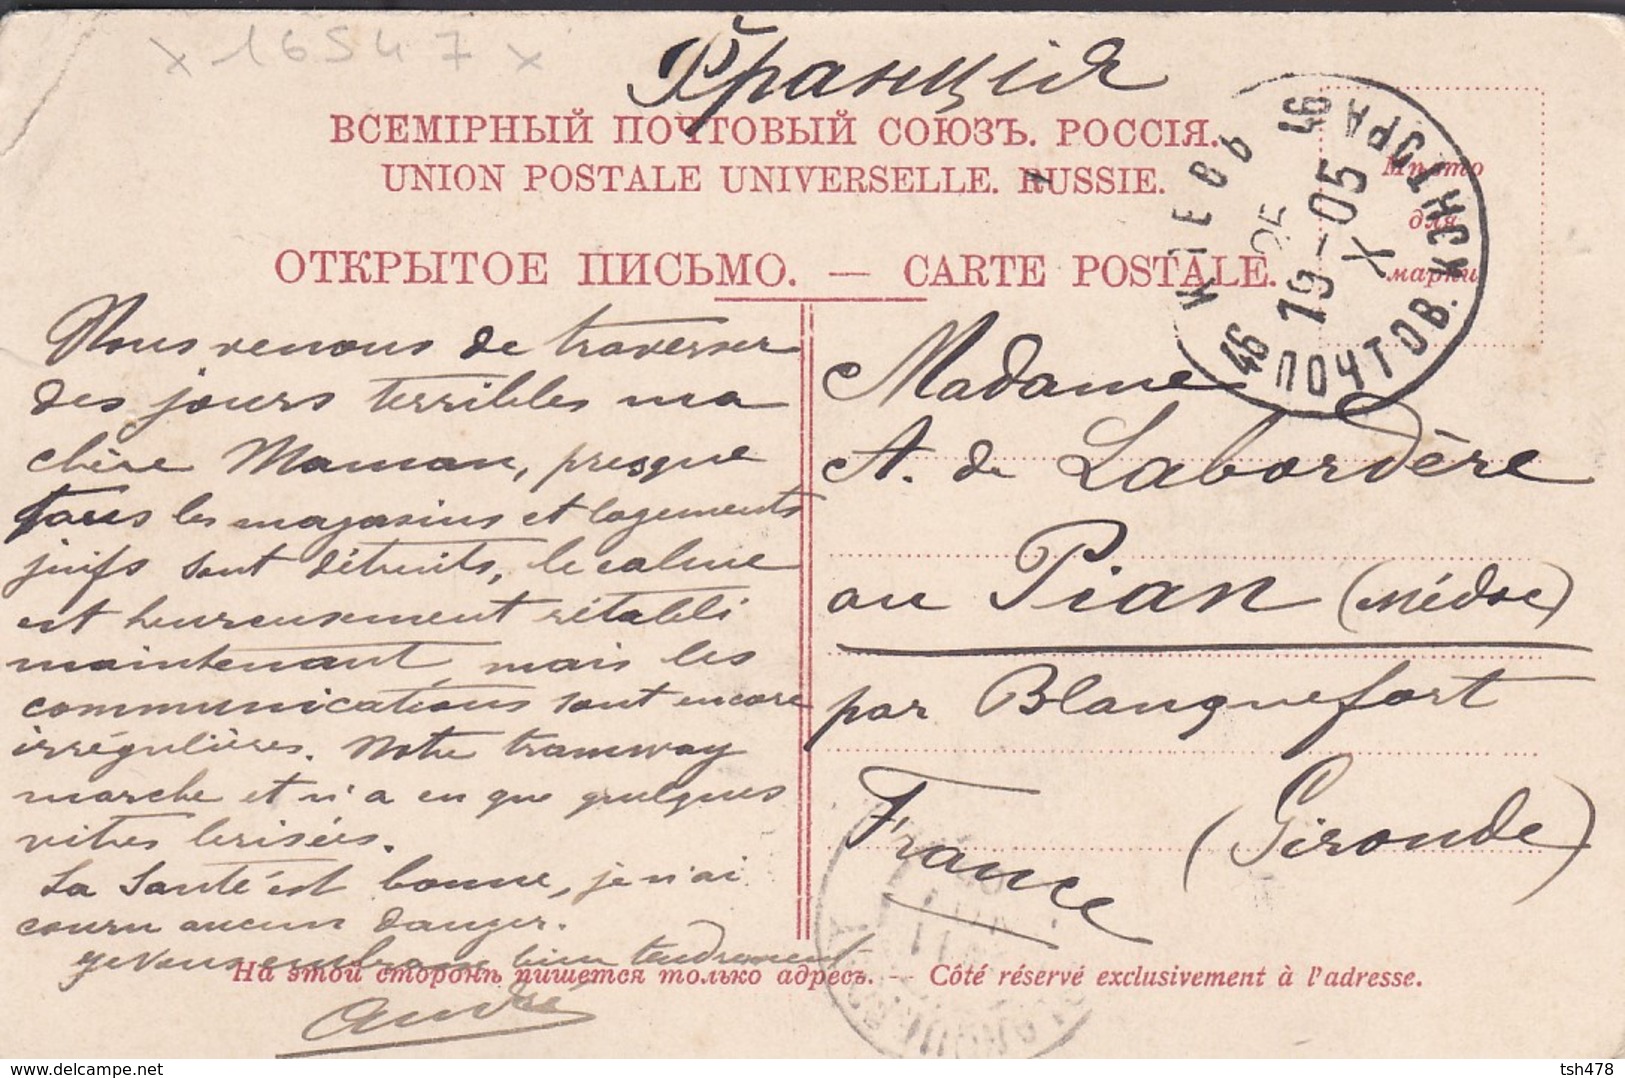 x 16547 x
Франція
ВСЕМІРНЫЙ ПОЧТОВЫЙ СОЮЗЪ. РОССІЯ.
UNION POSTALE UNIVERSELLE. RUSSIE.
ОТКРЫТОЕ ПИСЬМО. — CARTE POSTALE.
Мѣсто
для
марки
КІЕВЪ 46
19-05
X
46 ПОЧТОВ. КОНТОРА
Nous venons de traverser
des jours terribles ma
chère Maman, presque
tous les magasins et logements
juifs sont détruits, le calme
est heureusement rétabli
maintenant, mais les
communications sont encore
irrégulières. Notre tramway
marche et n'a eu que quelques
vitres brisées.
La Santé est bonne, je n'ai
couru aucun danger.
Je vous embrasse bien tendrement
André
Madame
A. de Labordère
au Pian (Médoc)
par Blanquefort
France (Gironde)
На этой сторонѣ пишется только адресъ. — Côté réservé exclusivement à l'adresse.
tsh478